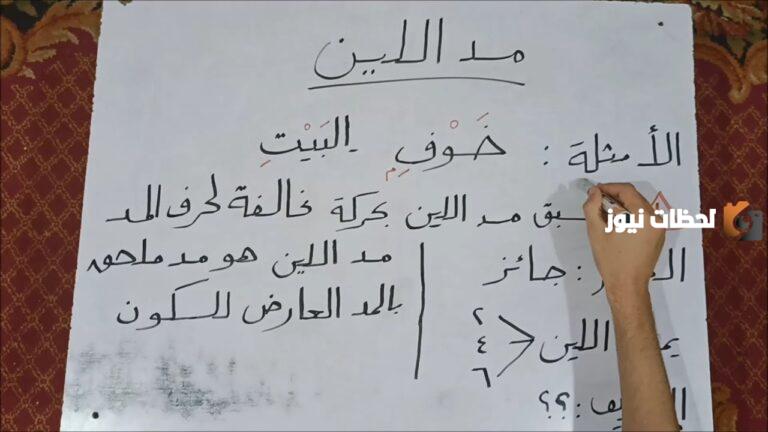 مد اللين
الأمثلة : خَوْفٍ البَيْتِ
مد اللين بحركة مخالفة لحرف المد
جائز
مد اللين هو مد ملحق
بالمد العارض للسكون
اللين
٢
٤
٦
؟؟
لحظات نيوز